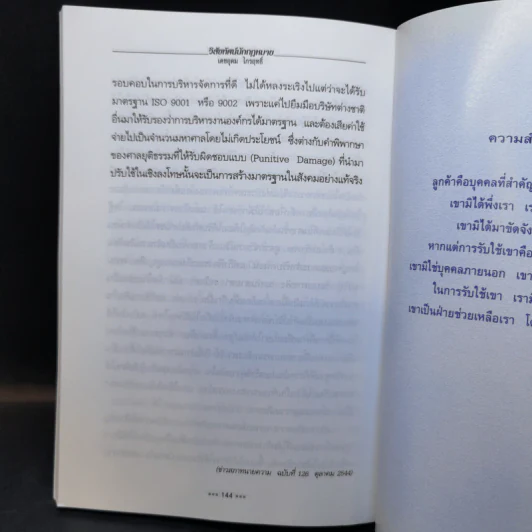 วิสัยทัศน์นักกฎหมาย
เดชอุดม ไกรฤทธิ์
รอบคอบในการบริหารจัดการที่ดี ไม่ได้หลงระเริงไปแต่ว่าจะได้รับ
มาตรฐาน ISO 9001 หรือ 9002 เพราะแค่ไปยืมมือบริษัทต่างชาติ
อื่นมาให้รับรองว่าการบริหารงานองค์กรได้มาตรฐาน และต้องเสียค่าใช้
จ่ายไปเป็นจำนวนมหาศาลโดยไม่เกิดประโยชน์ ซึ่งต่างกับคำพิพากษา
ของศาลยุติธรรมที่ให้รับผิดชอบแบบ (Punitive Damage) ที่นำมา
ปรับใช้ในเชิงลงโทษนั้นจะเป็นการสร้างมาตรฐานในสังคมอย่างแท้จริง
(ข่าวสภาทนายความ ฉบับที่ 128 ตุลาคม 2544)
144
ความสำ
ลูกค้าคือบุคคลที่สำคัญ
เขามิได้พึ่งเรา เร
เขามิได้มาขัดจัง
หากแต่การรับใช้เขาคือ
เขามิใช่บุคคลภายนอก เขา
ในการรับใช้เขา เรามิ
เขาเป็นฝ่ายช่วยเหลือเรา โด